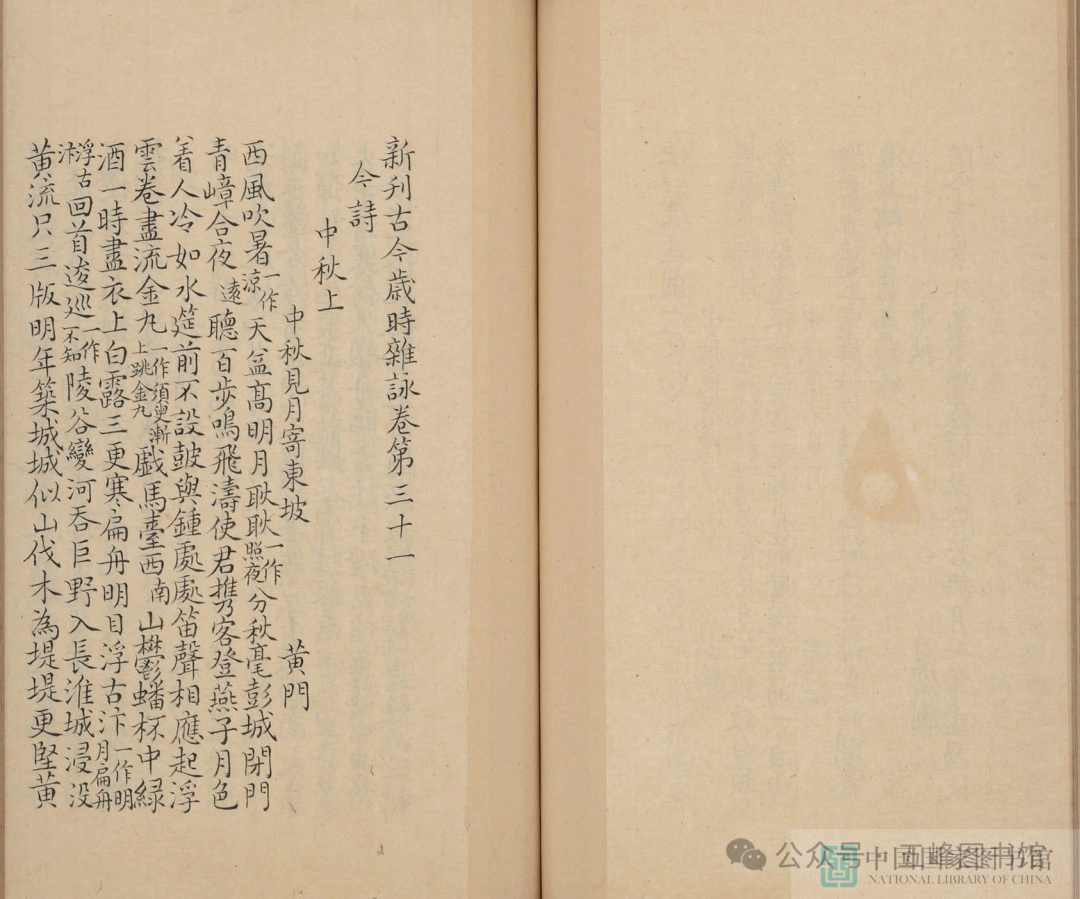 新刋古今歳時雜詠卷第三十一
今詩
中秋上
中秋見月寄東坡 黃門
西風吹暑一作涼天益髙明月耿耿一作照夜分秋毫彭城閉門
青嶂合夜遠聽百步鳴飛濤使君攜客登燕子月色
着人冷如水筵前不設皷與鍾處處笛聲相應起浮
雲卷盡流金丸一作須臾漸上跳金丸戯馬臺西南山鬱蟠杯中緑
酒一時盡衣上白露三更寒扁舟明日浮古汴一作明月扁舟
浮古汴回首逡巡一作不知陵谷變河吞巨野入長淮城浸没
黃流只三版明年築城城似山伐木為堤堤更堅黃
公众号·西峰图书馆
中国国家图书馆
NATIONAL LIBRARY OF CHINA